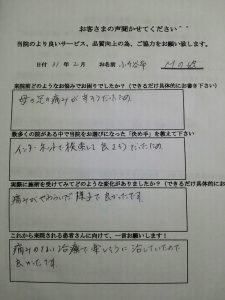 お客さまの声聞かせてください^^
当院のより良いサービス、品質向上の為、ご協力をお願い致します。
日付 31年 2月 お名前
来院前どのようなお悩みでお困りでしたか?(できるだけ具体的にお書き下さい)
母の足の痛みがすごかったため
数多くの院がある中で当院をお選びになった「決め手」を教えて下さい
インターネットで検索して良さそうだったため
実際に施術を受けてみてどのような変化がありましたか?(できるだけ具体的に
痛みがやわらいだ様子で良かったです
これから来院される患者さんに向けて、一言お願いします!
痛みのない治療で楽しそうに治していたので
良かったです。